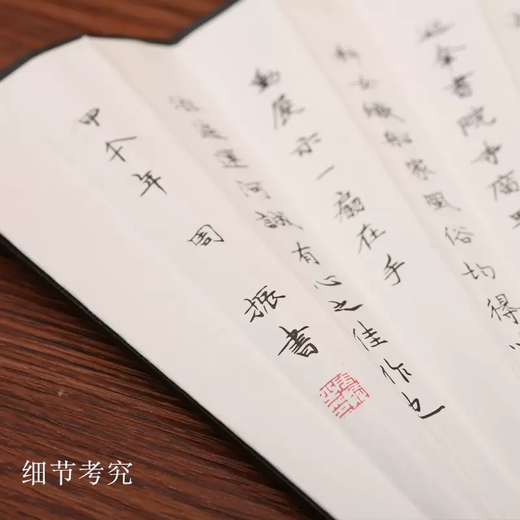 此金書院寺廟
和女繳船家風俗均得以
動展示一扇在手
遊運河誠有心之佳作也
甲午年 周振書
细节考究